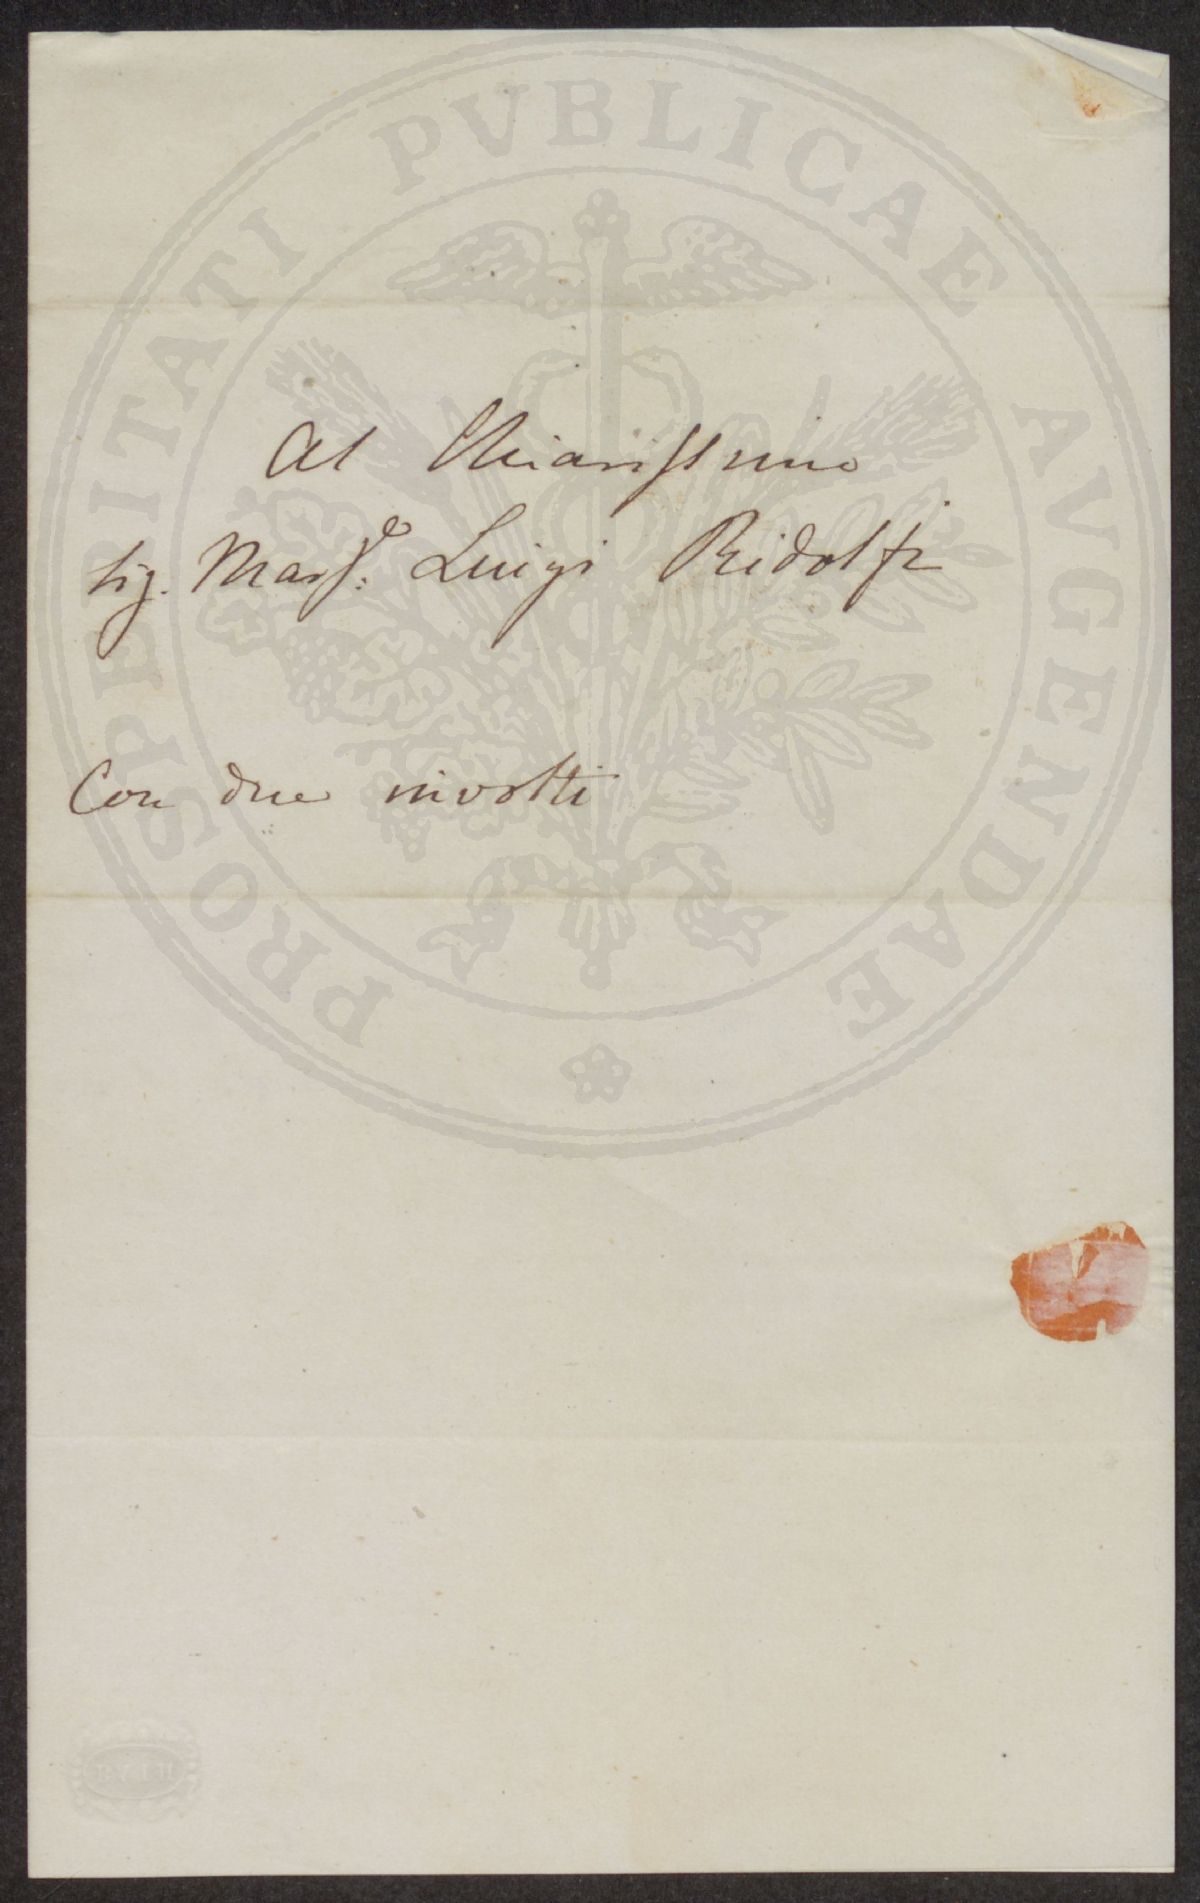 PROSPERITATI PVBLICAE AVGENDAE
Al Chiarissimo
Sig. Marse. Luigi Ridolfi
Con due involti
BATH